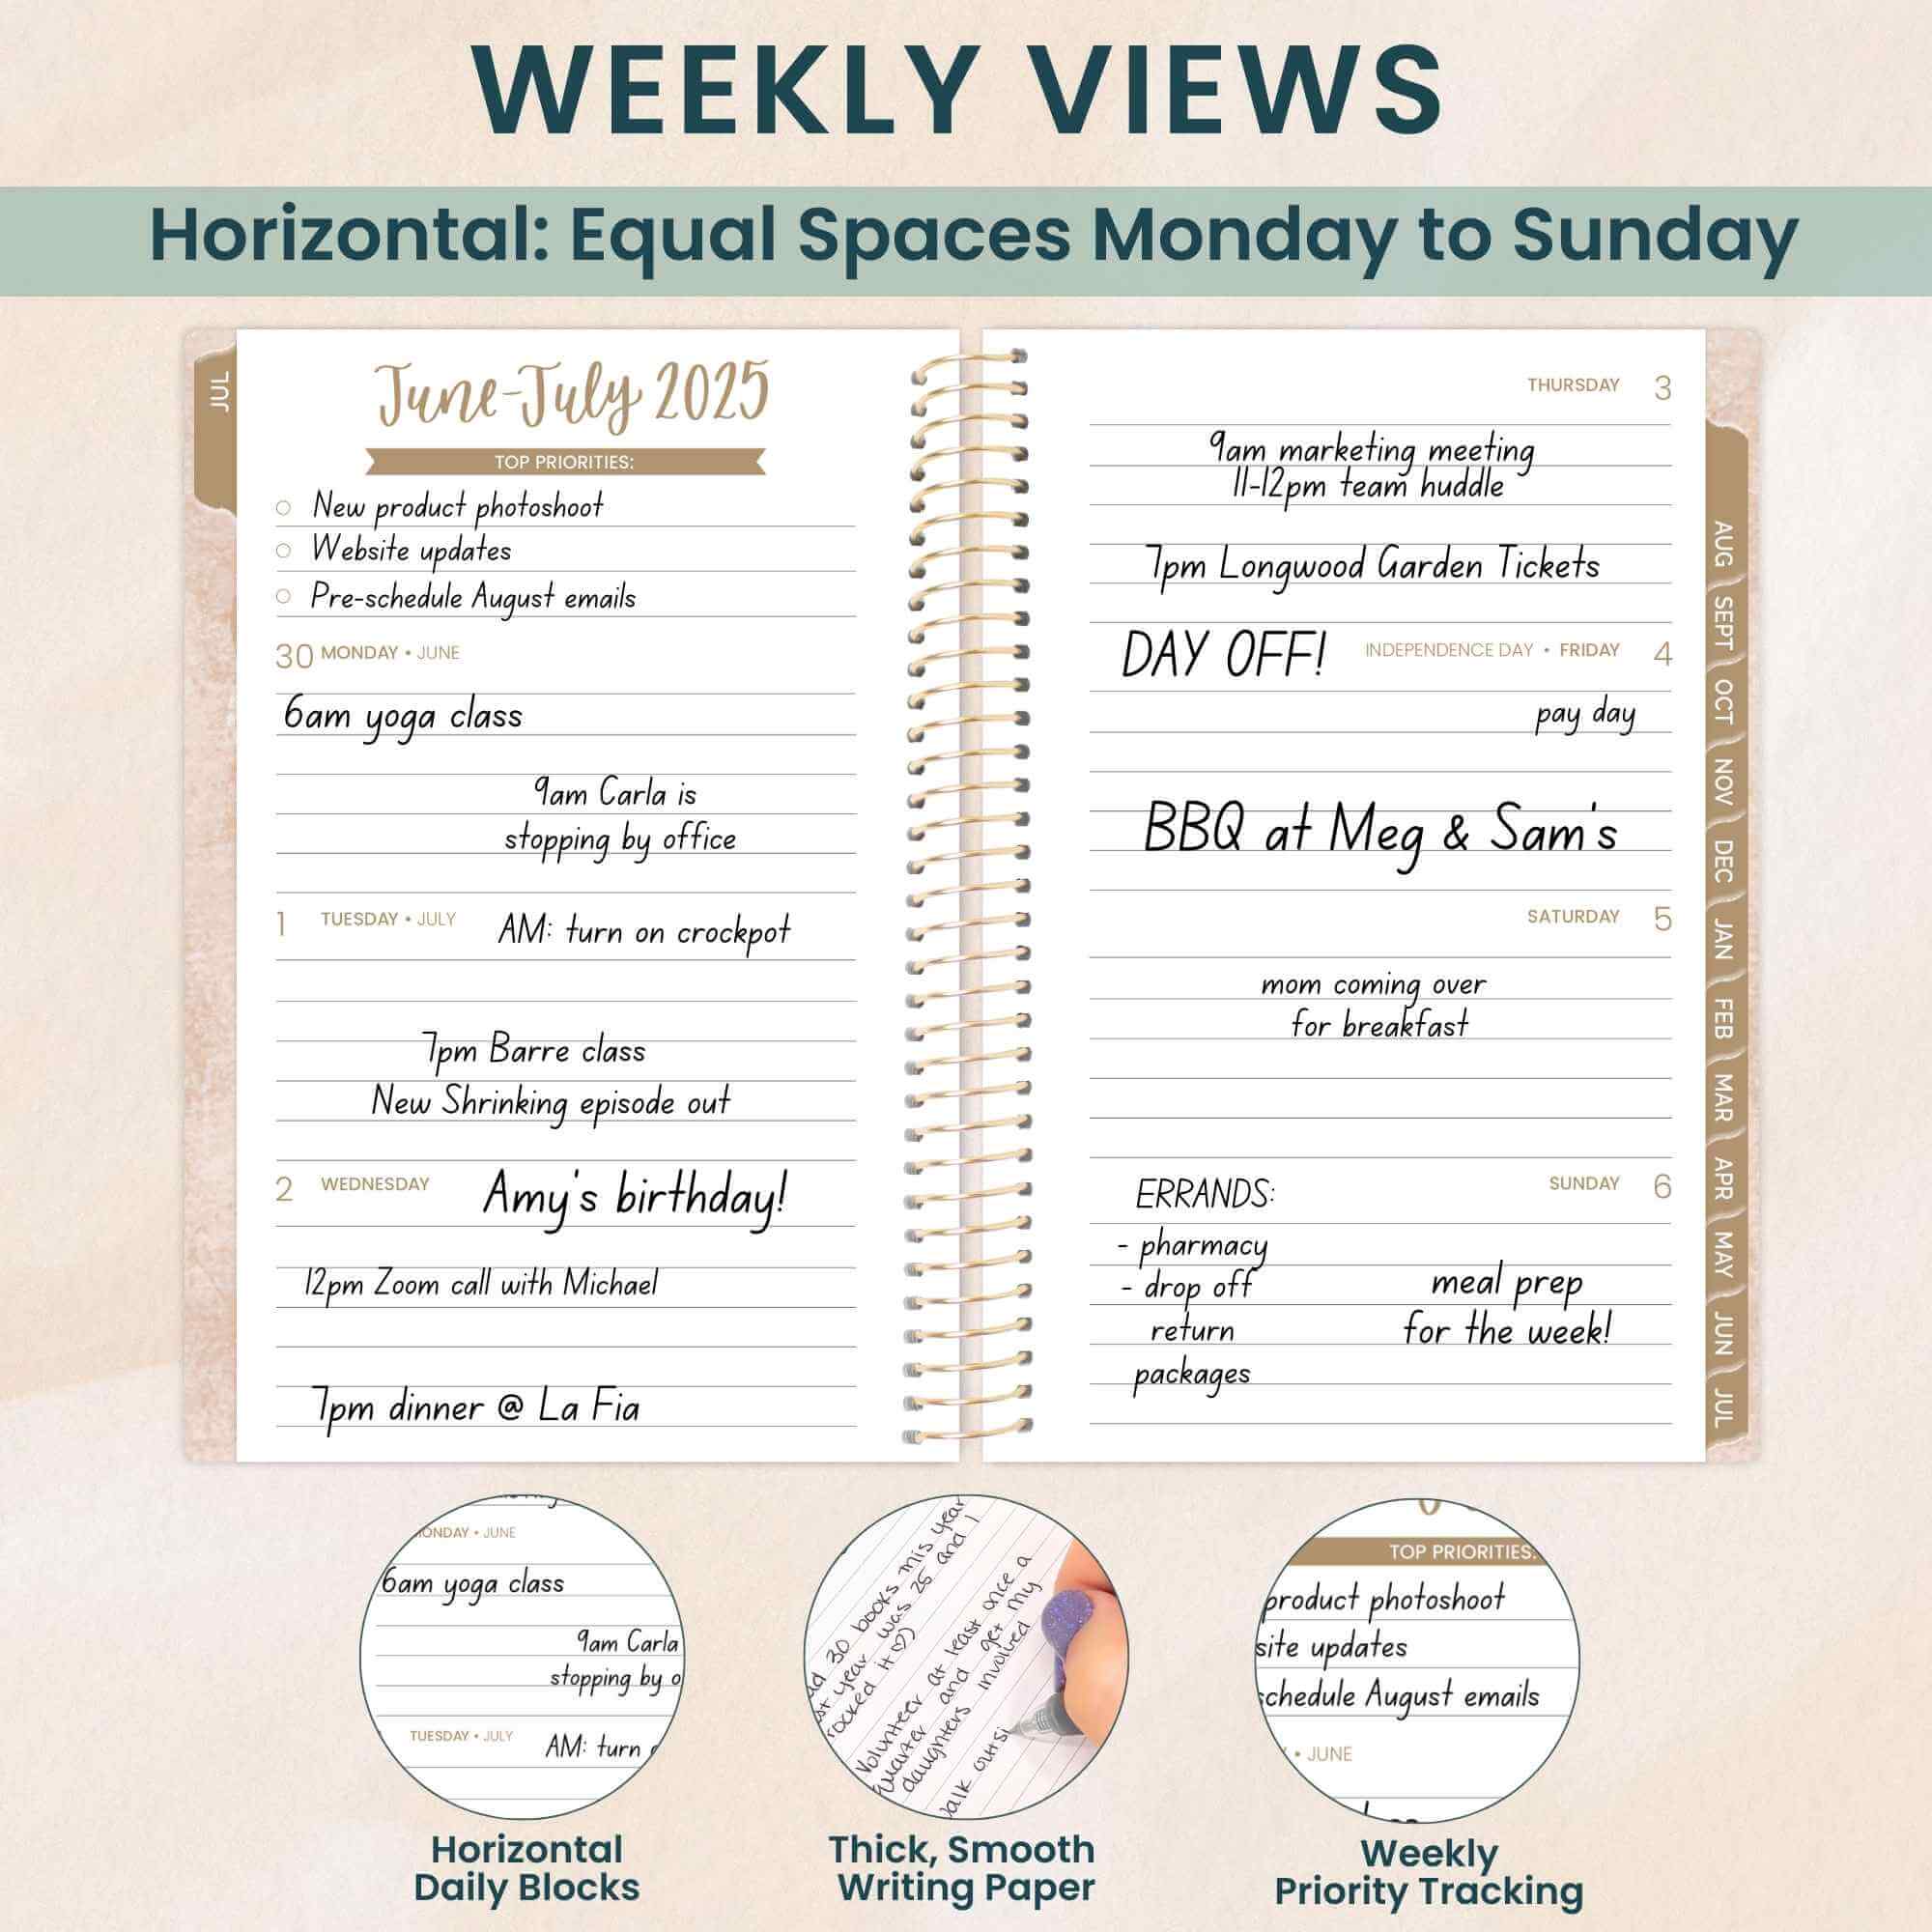 WEEKLY VIEWS
Horizontal: Equal Spaces Monday to Sunday
JUL
June-July 2025
TOP PRIORITIES:
New product photoshoot
Website updates
Pre-schedule August emails
30 MONDAY • JUNE
6am yoga class
9am Carla is
stopping by office
1 TUESDAY • JULY AM: turn on crockpot
7pm Barre class
New Shrinking episode out
2 WEDNESDAY Amy's birthday!
12pm Zoom call with Michael
7pm dinner @ La Fia
THURSDAY 3
9am marketing meeting
11-12pm team huddle
7pm Longwood Garden Tickets
DAY OFF! INDEPENDENCE DAY • FRIDAY 4
pay day
BBQ at Meg & Sam's
SATURDAY 5
mom coming over
for breakfast
ERRANDS: SUNDAY 6
- pharmacy
- drop off
return
packages
meal prep
for the week!
AUG
SEPT
OCT
NOV
DEC
JAN
FEB
MAR
APR
MAY
JUN
JUL
ONDAY • JUNE
6am yoga class
9am Carla
stopping by o
TUESDAY • JULY
AM: turn
Horizontal
Daily Blocks
30 books this year
year was 25 and I
rocked it ♡)
Volunteer at least once a
quarter and get my
daughters involved
outsi
Thick, Smooth
Writing Paper
TOP PRIORITIES:
product photoshoot
site updates
schedule August emails
• JUNE
Weekly
Priority Tracking